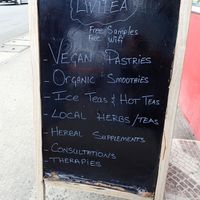 LIVITEA
Free Samples
Free Wifi
- VEGAN PASTRIES
- ORGANIC SMOOTHIES
- ICE TEAS & HOT TEAS
- LOCAL HERBS/TEAS
- HERBAL SUPPLEMENTS
- CONSULTATIONS
- THERAPIES